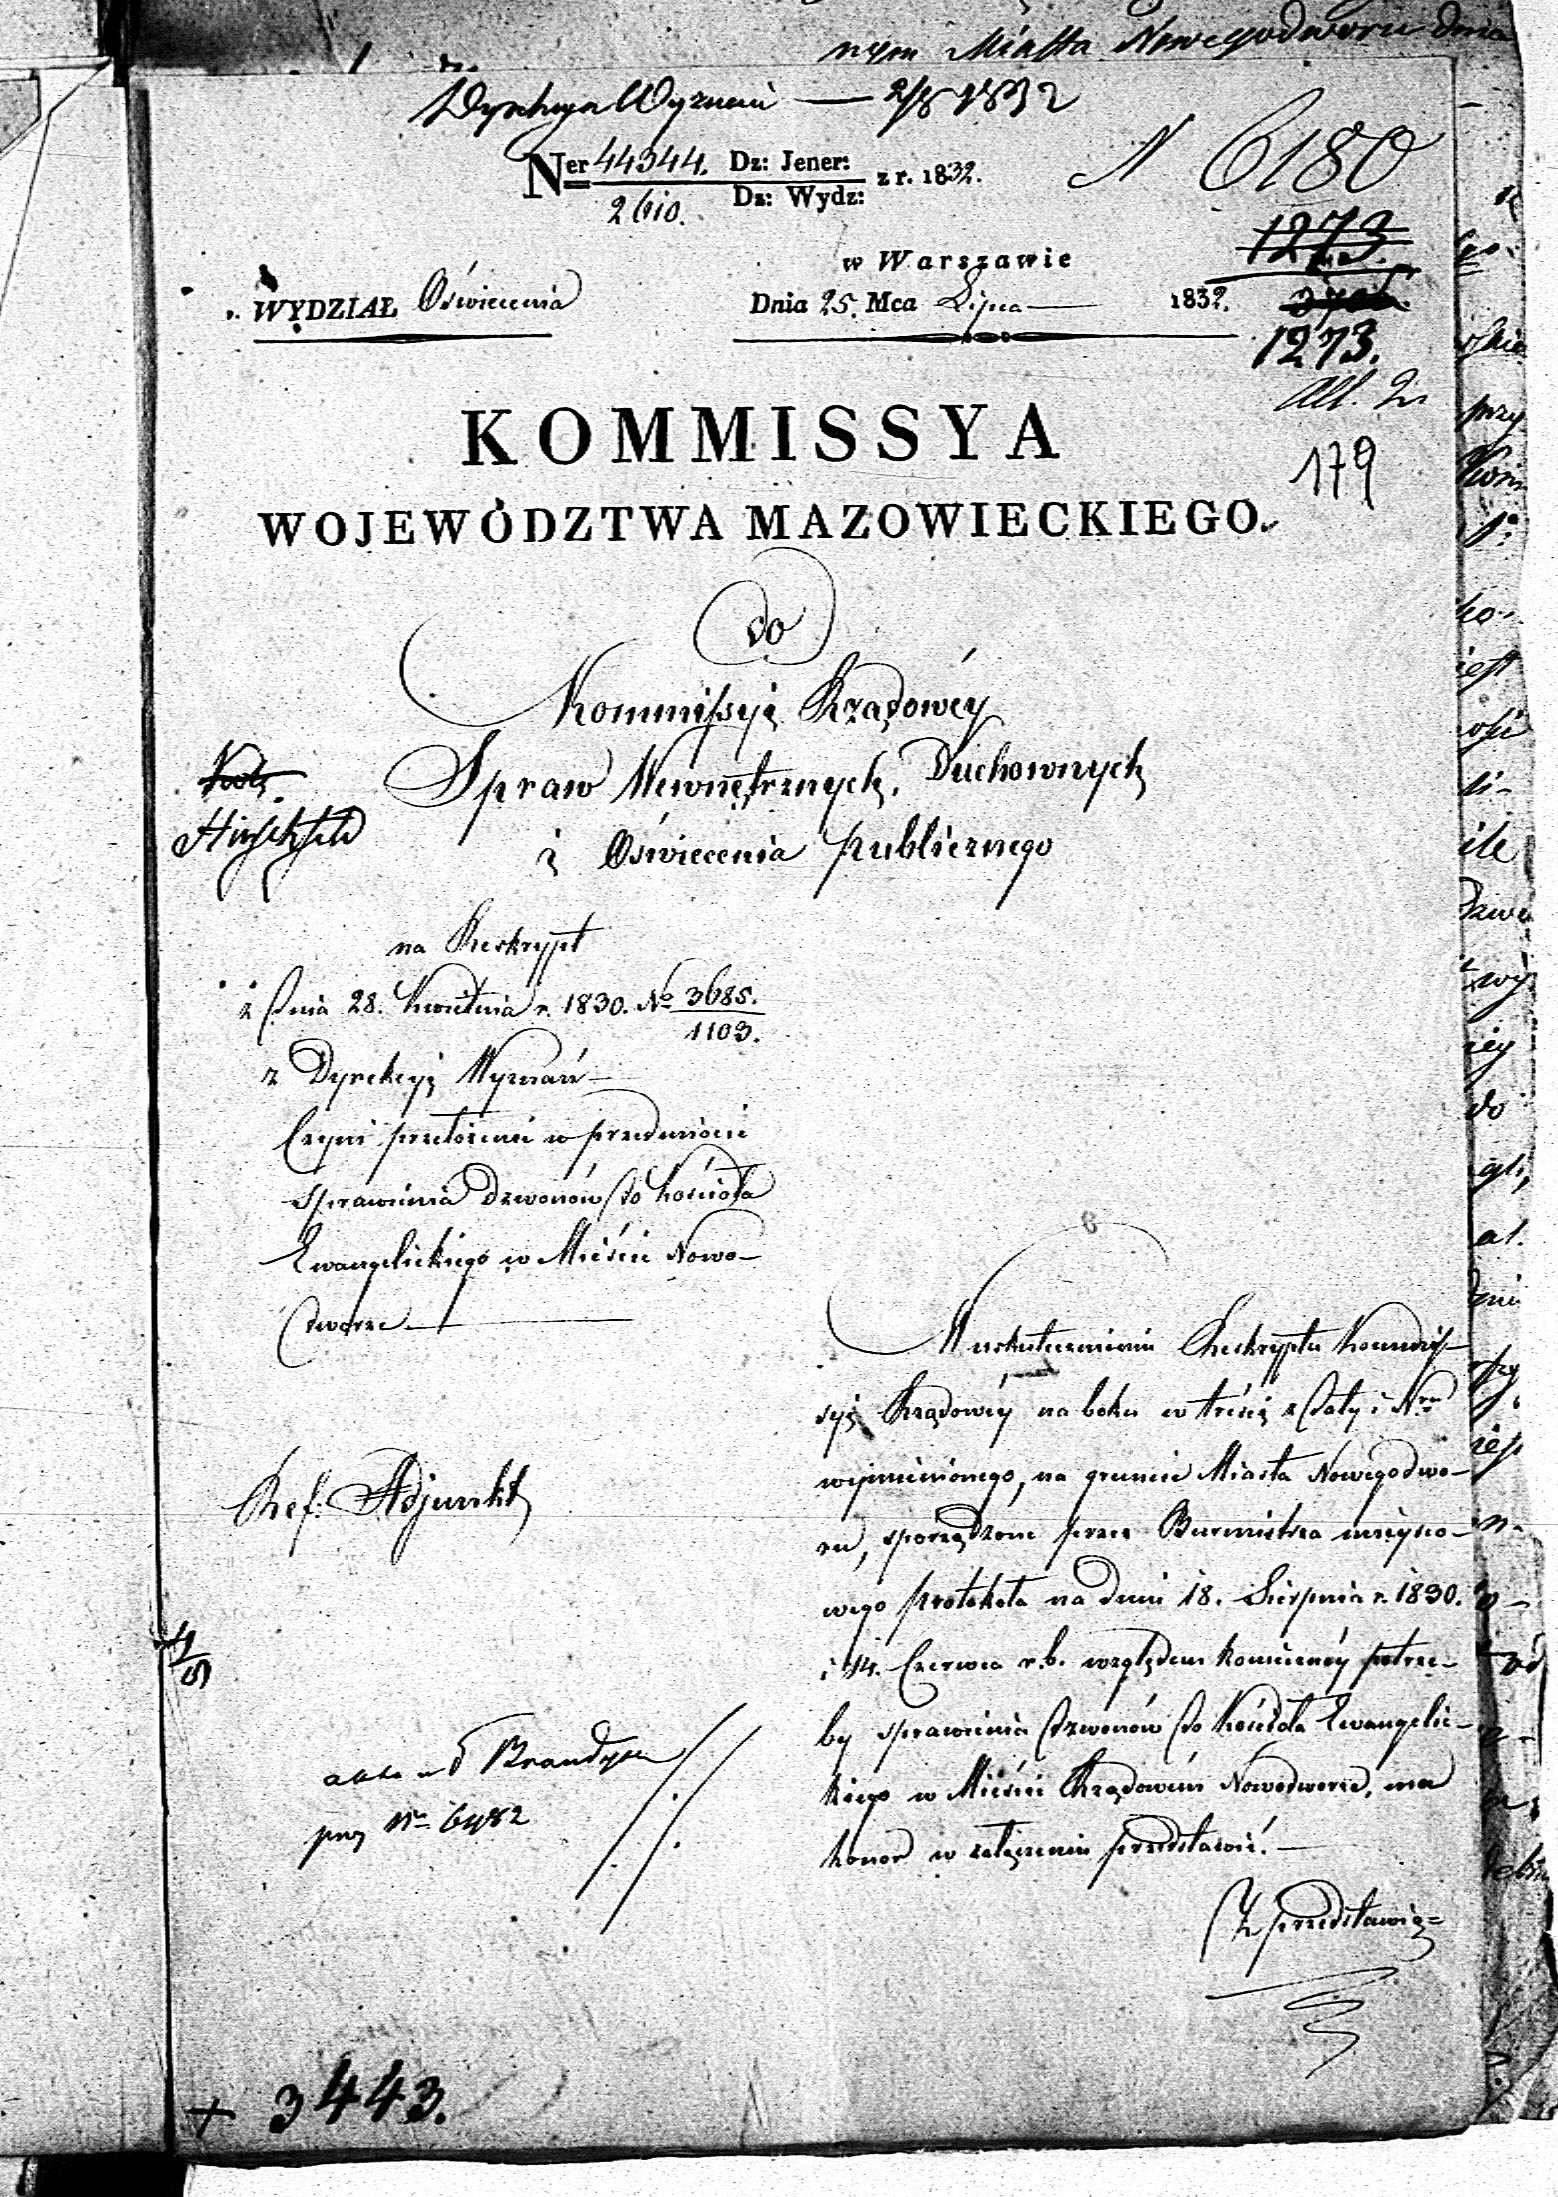 nym Miasta Nowegodworu dnia
Dyrekcya Wyznań — 2/8 1832
Ner 44344. Dz: Jener: z r. 1832.
2610. Dz: Wydz:
N 6180
1273.
w Warszawie
WYDZIAŁ Oświecenia Dnia 25. Mca Lipca 1832.
1273.
All. 2.
KOMMISSYA
179
WOJEWÓDZTWA MAZOWIECKIEGO.
do
Kommissyi Rządowéy
Spraw Wewnętrznych, Duchownych
i Oświecenia publicznego
na Reskrypt
z dnia 28. Kwietnia r. 1830. No 3685.
1103.
z Dyrekcyi Wyznań
Czyni przełożenie w przedmiocie
sprawienia dzwonów do kościoła
Ewangelickiego w Mieście Nowo-
dworze.
W uskutecznieniu Reskryptu Kommis-
syi Rządowéy na boku w treści z daty i Nru
wymienionego, na gruncie Miasta Nowegodwo-
ru, sporządzone przez Burmistrza mieysco-
wego protokoła na dniu 18. Sierpnia r. 1830.
i 14. Czerwca r. b. względem konieczney potrze-
by sprawienia dzwonów do Kościoła Ewangelic-
kiego w Mieście Rządowém Nowodworze, ma
honor w załączeniu przedstawić.
Ref: Adjunkt
akta u P Brandysza
przy Nr 6482
Z przedstawio=
+ 3443.